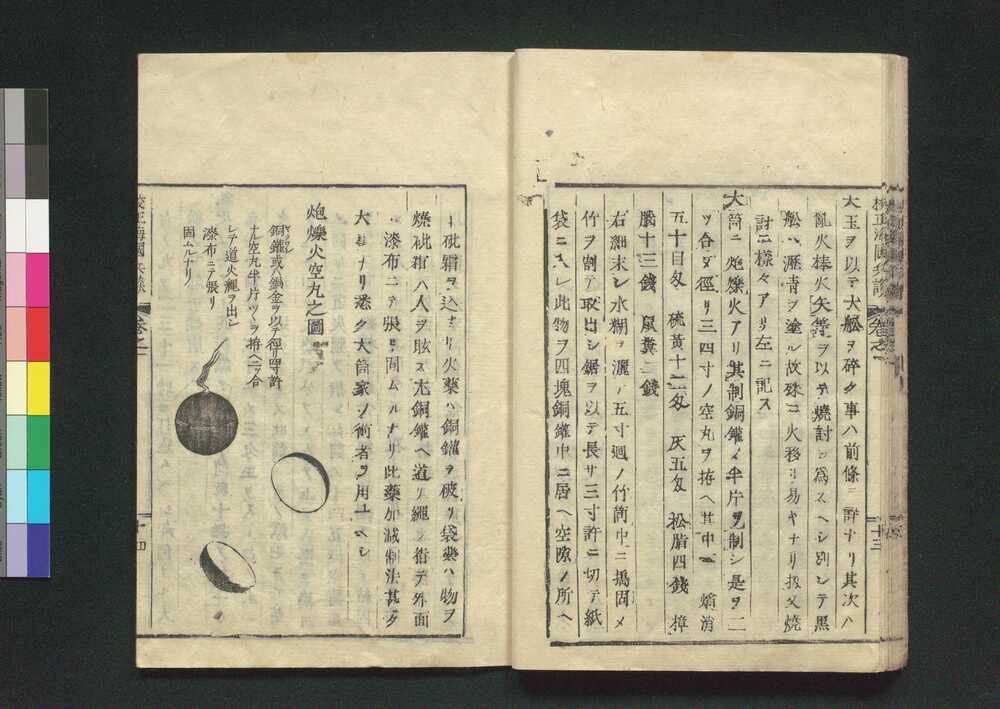 校正海國兵談 卷之一 十三
大玉ヲ以テ大舩ヲ碎ク事ハ前條ニ詳ナリ其次ハ
亂火棒火矢等ヲ以テ燒討ヲ爲スヘシ別シテ黑
舩ハ瀝青ヲ塗ル故殊ニ火移リ易キナリ扨又燒
討ニ樣々アリ左ニ記ス
大筒ニ炮爍火アリ其制銅鑵ノ半片ヲ制シ是ヲ二
ツ合テ徑リ三四寸ノ空丸ヲ拵ヘ其中ヘ 焔消
五十目匁 硫黄十二匁 灰五匁 松脂四錢 樟
腦十三錢 鼠糞三錢
右細末シ水糊ヲ灑ノ五寸廻ノ竹筒中ニ搗固メ
竹ヲ割テ取出シ鋸ヲ以テ長サ三寸許ニ切テ紙
袋ニ入レ此物ヲ四塊銅鑵中ニ居ヘ空隙ノ所ヘ
ハ砒霜ヲ込ナリ火藥ハ銅鑵ヲ破リ袋藥ハ物ヲ
燒砒霜ハ人ヲ眩ス尤銅鑵ヘ道火繩ヲ指テ外面
ハ漆布ニテ張リ固ムルナリ此藥加減制法甚タ
大事ナリ悉ク大筒家ノ術者ヲ用ユヘシ
炮爍火空丸之圖
銅鑵或ハ鍋金ヲ以テ徑リ四寸許
ナル空丸半片ツヽヲ拵ヘ二ツ合
シテ道火繩ヲ出シ
漆布ニテ張リ
固ムルナリ
校正海國兵談 卷之一 十四